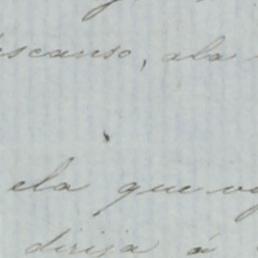 descanso, ala
ela que
dirija á